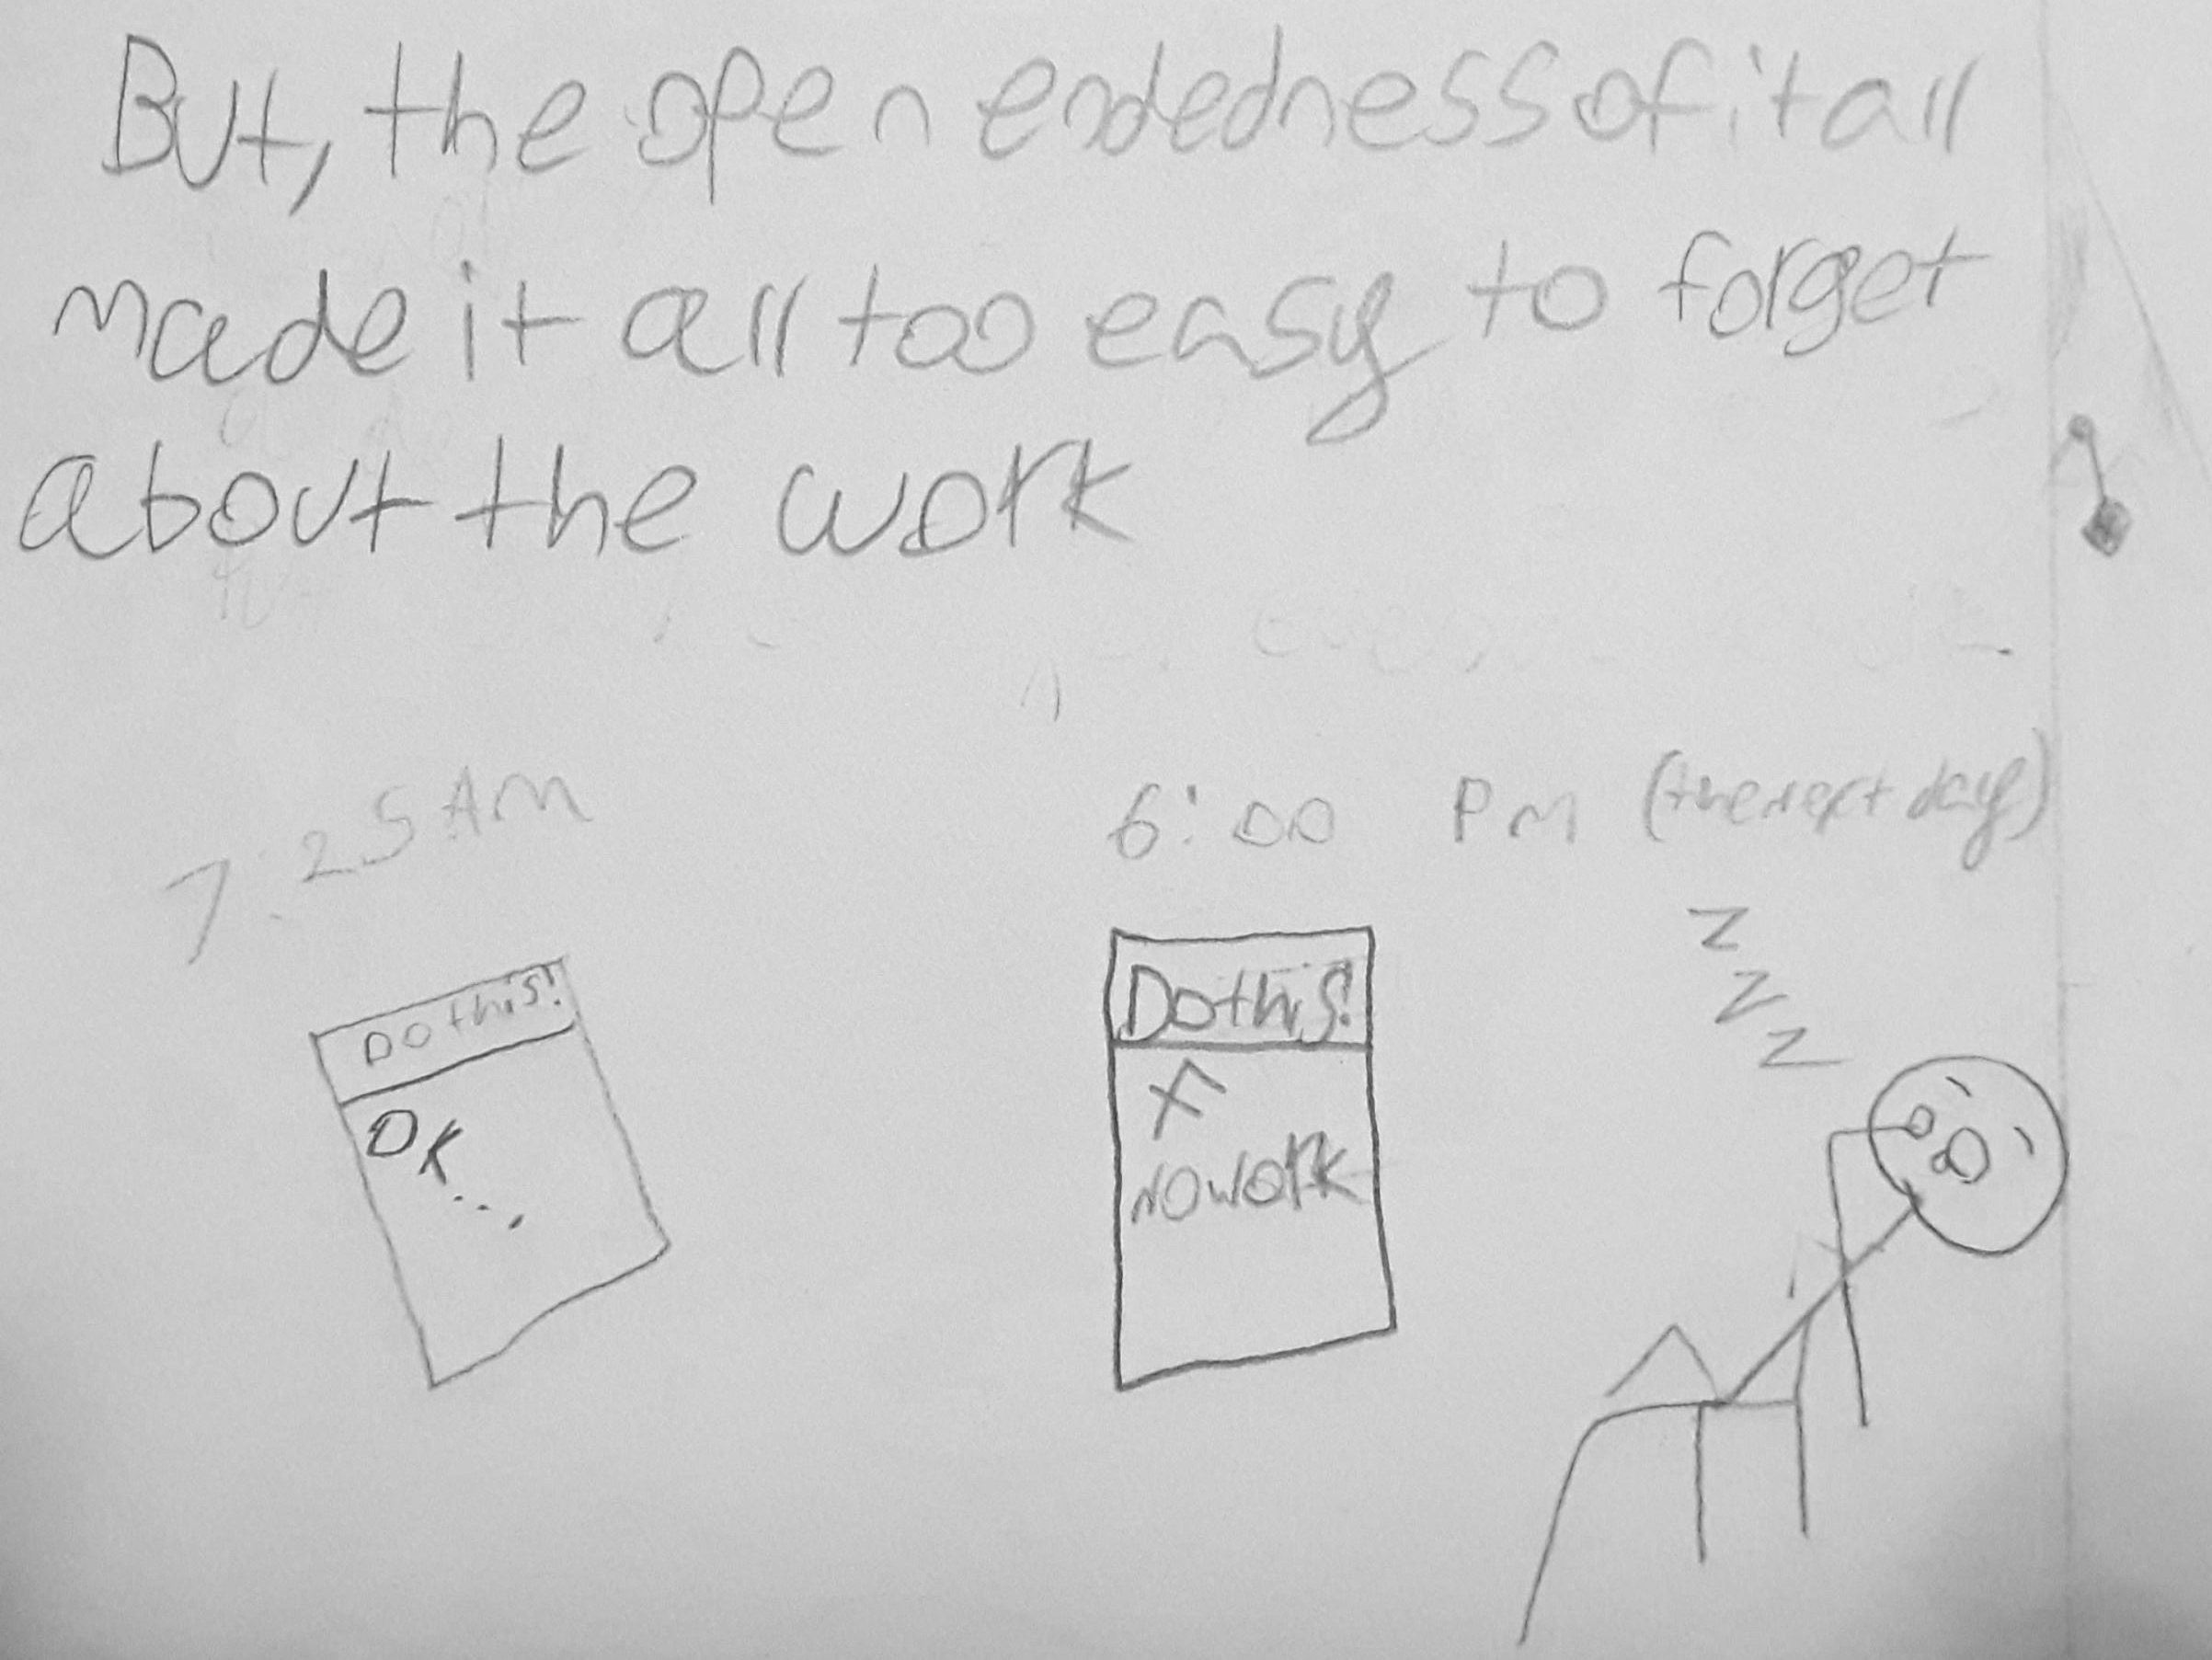 But, the open endedness of it all
made it all too easy to forget
about the work
7:25 AM
6:00 PM (the next day)
Do this!
OK...
Do this!
X
NO work
z
z
z